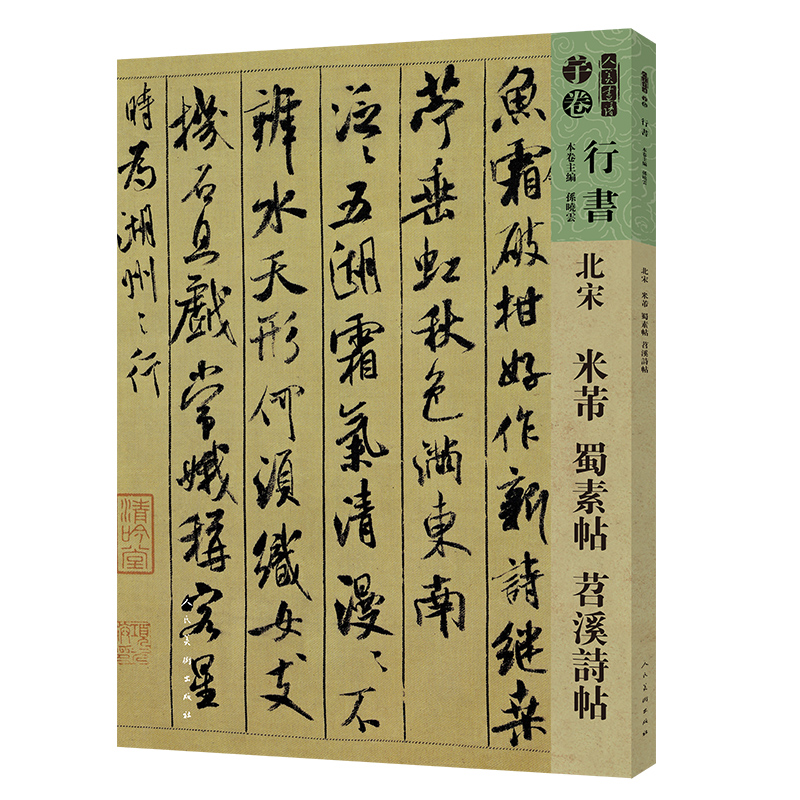 人美書譜
宇卷
行書
本卷主編 孫曉雲
北宋 米芾 蜀素帖 苕溪詩帖
魚霜破柑好作新詩继桑
苧垂虹秋色滿東南
泛〻五湖霜氣清漫〻不
辨水天形何須織女支
機石且戲常娥稱客星
時為湖州之行
清吟堂
人民美術出版社
行書
本卷主編 孫曉雲
北宋 米芾 蜀素帖 苕溪詩帖
人民美術出版社